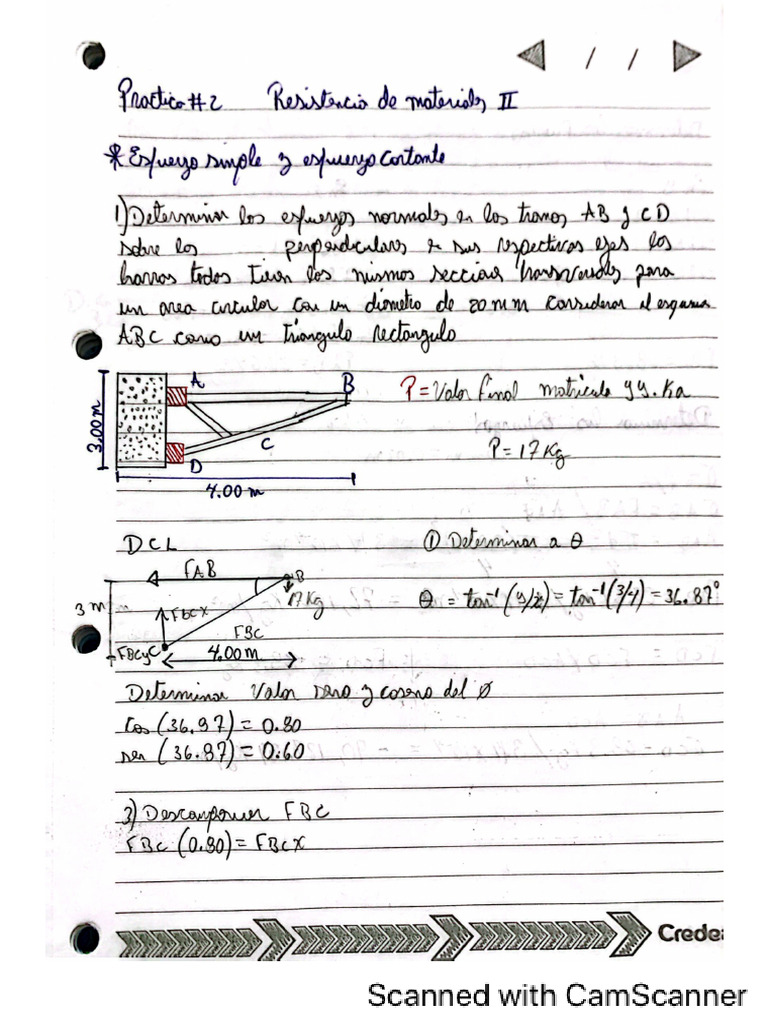 / /
Practico #2 Resistencia de materiales II
* Esfuerzo simple y esfuerzo cortante
1) Determinar los esfuerzos normales en los tramos AB y CD
sobre los perpendiculares a sus respectivos ejes los
barras todos tienen las mismas secciones transversales para
un area circular con un diametro de 20 mm considerar el esquema
ABC como un triangulo rectangulo
A B
P = Valor final matricula yy. Ka
3.00 m
C
P = 17 Kg
D
4.00 m
DCL
① Determinar a θ
FAB
B
17 Kg
3 m
FBCX
θ = tan⁻¹ (y/x) = tan⁻¹ (3/4) = 36.87°
FBC
FBCy C
4.00 m
Determinar Valor seno y coseno del Ø
Cos (36.87) = 0.80
sen (36.87) = 0.60
3) Descomponer FBC
FBC (0.80) = FBCX
Credea
Scanned with CamScanner